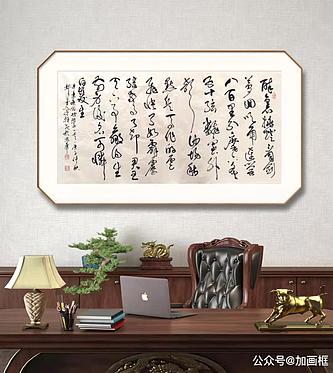 醉里挑灯看剑
梦回吹角连营
八百里分麾下
炙五十弦翻塞外
声沙场秋
点兵马作的卢
飞快弓如霹雳
弦惊了却君王
天下事赢得生
前身后名可怜
白发生
公众号@加画框